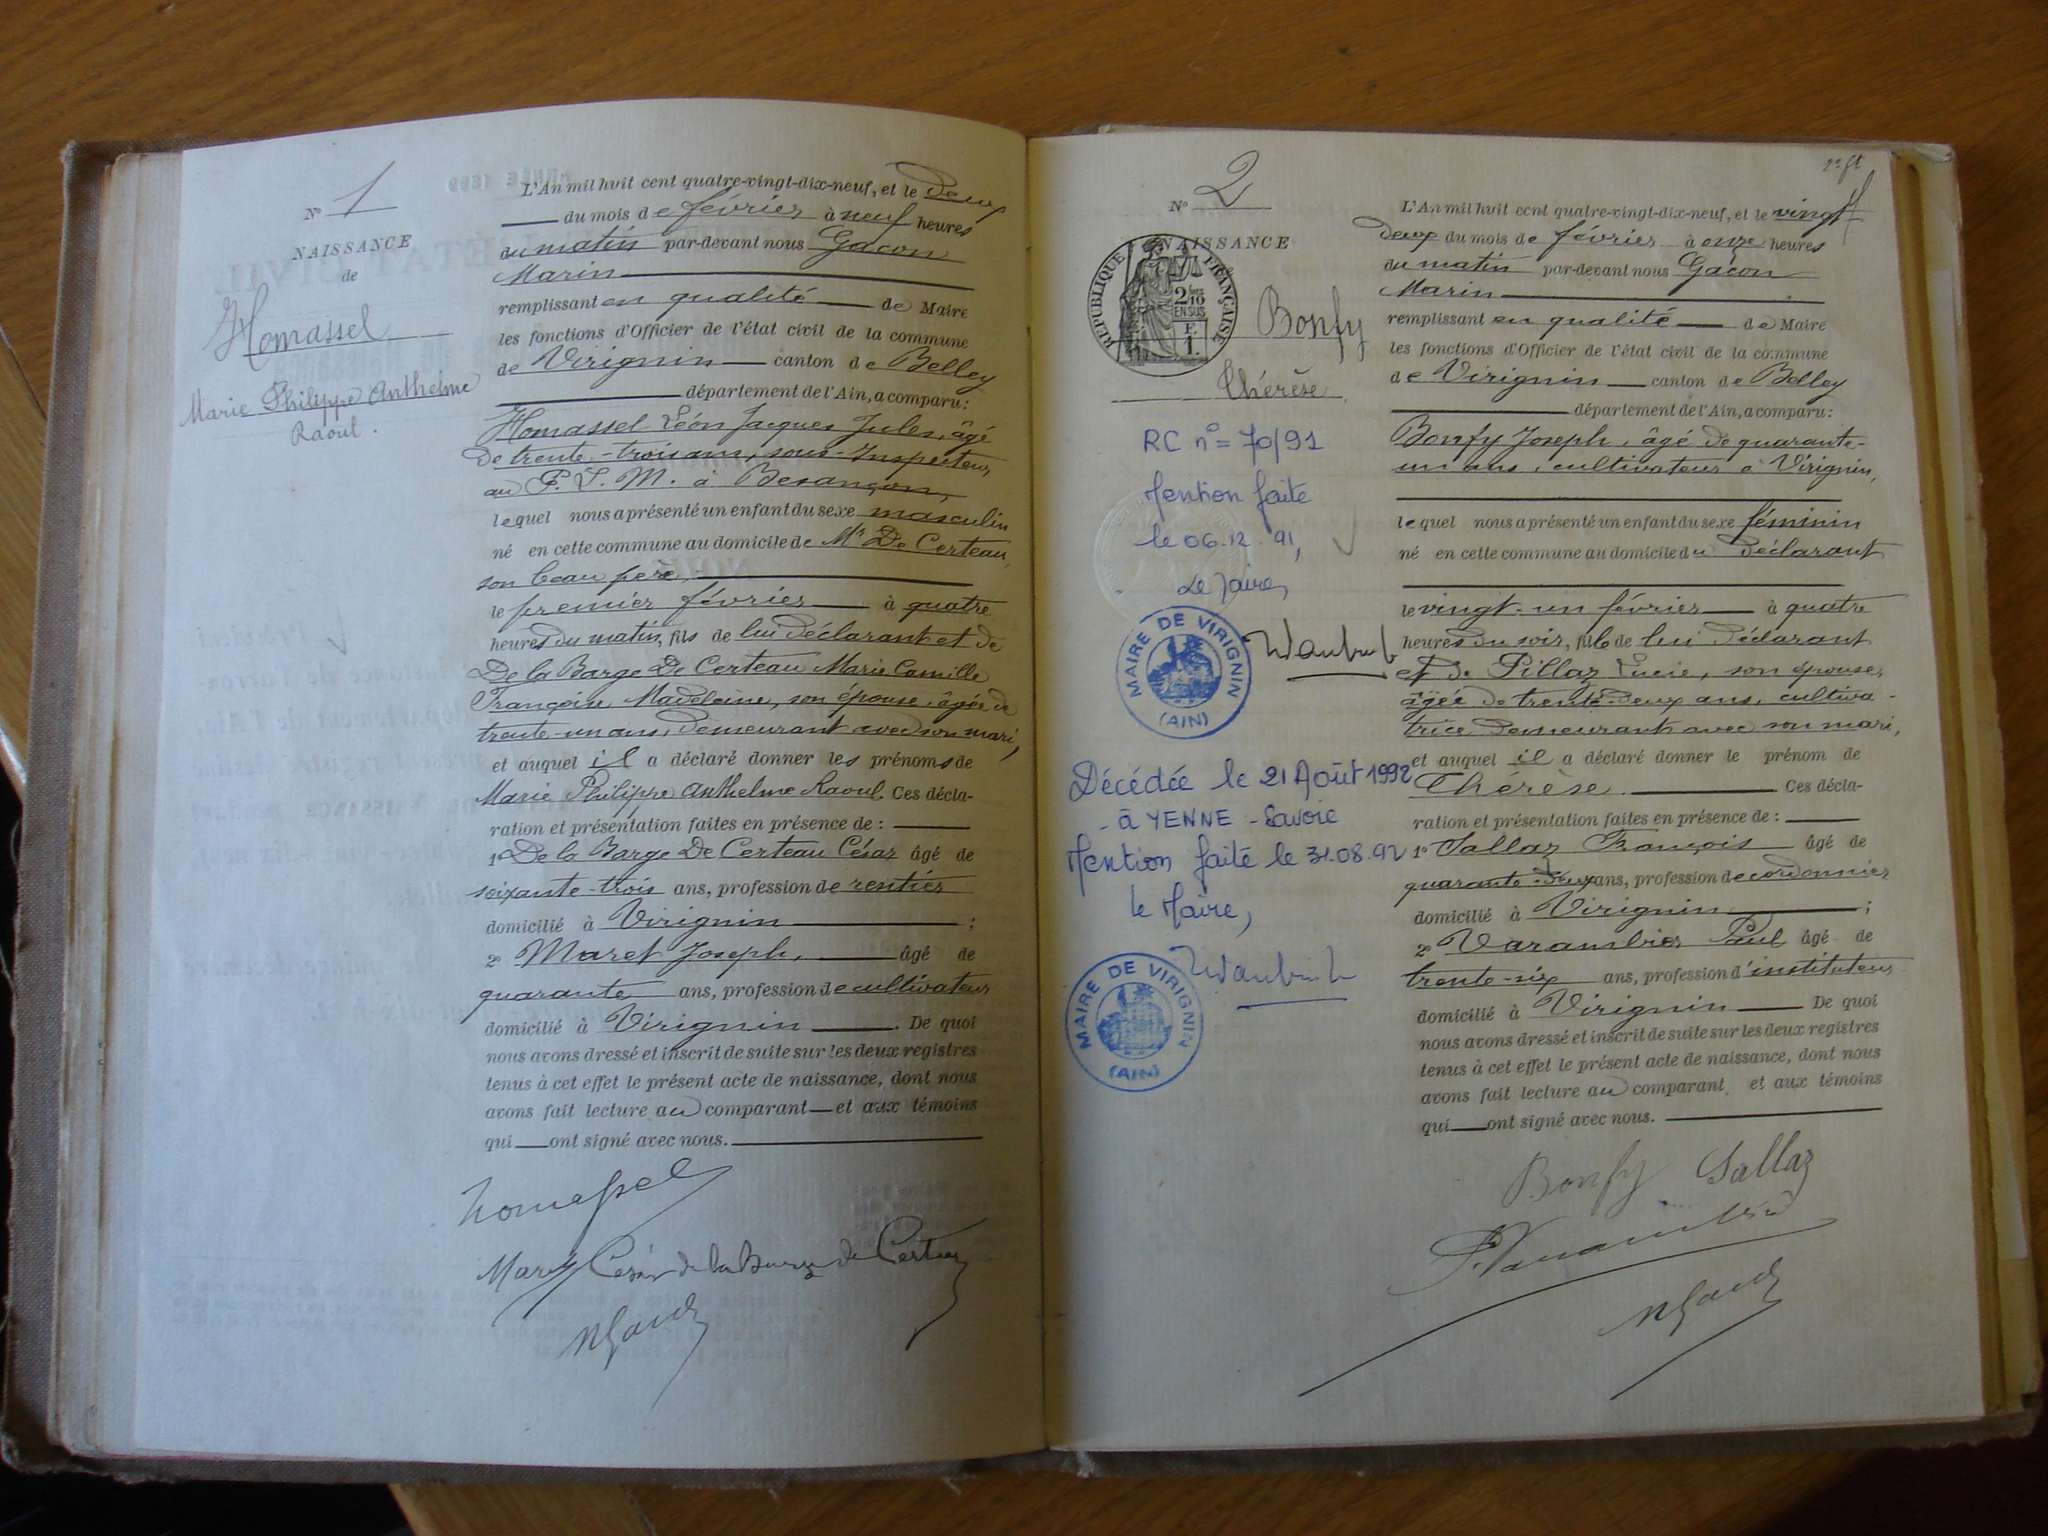 N° 1
NAISSANCE
de
Homassel
Marie Philippe Anthelme
Raoul.
L'An mil huit cent quatre-vingt-dix-neuf, et le deux
du mois de février à neuf heures
du matin par-devant nous Gacon
Marin
remplissant en qualité de Maire
les fonctions d'Officier de l'état civil de la commune
de Virignin canton de Belley
département de l'Ain, a comparu:
Homassel Léon Jacques Jules, âgé
de trente-trois ans, sous-Inspecteur
au P. L. M. à Besançon,
lequel nous a présenté un enfant du sexe masculin
né en cette commune au domicile de Mr De Certeau,
son beau père,
le premier février à quatre
heures du matin, fils de lui déclarant et de
De la Barge De Certeau Marie Camille
Françoise Madeleine, son épouse, âgée de
trente-un ans, demeurant avec son mari,
et auquel il a déclaré donner les prénoms de
Marie Philippe Anthelme Raoul. Ces décla-
ration et présentation faites en présence de:
1° De la Barge De Certeau César âgé de
soixante-trois ans, profession de rentier
domicilié à Virignin ;
2° Maret Joseph, âgé de
quarante ans, profession de cultivateur
domicilié à Virignin . De quoi
nous avons dressé et inscrit de suite sur les deux registres
tenus à cet effet le présent acte de naissance, dont nous
avons fait lecture au comparant et aux témoins
qui ont signé avec nous.
Homassel
Maret César de la Barge de Certeau
MGacon
N° 2
NAISSANCE
RÉPUBLIQUE FRANÇAISE
2/10
EN SUS
F.
1.
Bonfy
Thérèse
RC n° = 70/91
Mention faite
le 06.12.91,
Le Maire,
MAIRE DE VIRIGNIN
(AIN)
Décédée le 21 Août 1992
- à YENNE - Savoie
Mention faite le 31.08.92
le Maire,
MAIRE DE VIRIGNIN
(AIN)
L'An mil huit cent quatre-vingt-dix-neuf, et le vingt
deux du mois de février à onze heures
du matin par-devant nous Gacon
Marin
remplissant en qualité de Maire
les fonctions d'Officier de l'état civil de la commune
de Virignin canton de Belley
département de l'Ain, a comparu:
Bonfy Joseph, âgé de quarante-
un ans, cultivateur à Virignin,
lequel nous a présenté un enfant du sexe féminin
né en cette commune au domicile du déclarant
le vingt-un février à quatre
heures du soir, fille de lui déclarant
et de Pillaz Lucie, son épouse,
âgée de trente-deux ans, cultiva-
trice demeurant avec son mari,
et auquel il a déclaré donner le prénom de
Thérèse. Ces décla-
ration et présentation faites en présence de:
1° Sallaz François âgé de
quarante-deux ans, profession de cordonnier
domicilié à Virignin ;
2° Varambier Paul âgé de
trente-six ans, profession d'instituteur
domicilié à Virignin De quoi
nous avons dressé et inscrit de suite sur les deux registres
tenus à cet effet le présent acte de naissance, dont nous
avons fait lecture au comparant et aux témoins
qui ont signé avec nous.
Bonfy Sallaz
MGacon